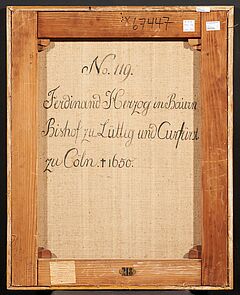 X67447
No. 119.
Ferdinand Herzog in Baiırn
Bischof zu Lüttig und Curfürst
zu Cöln. † 1650.